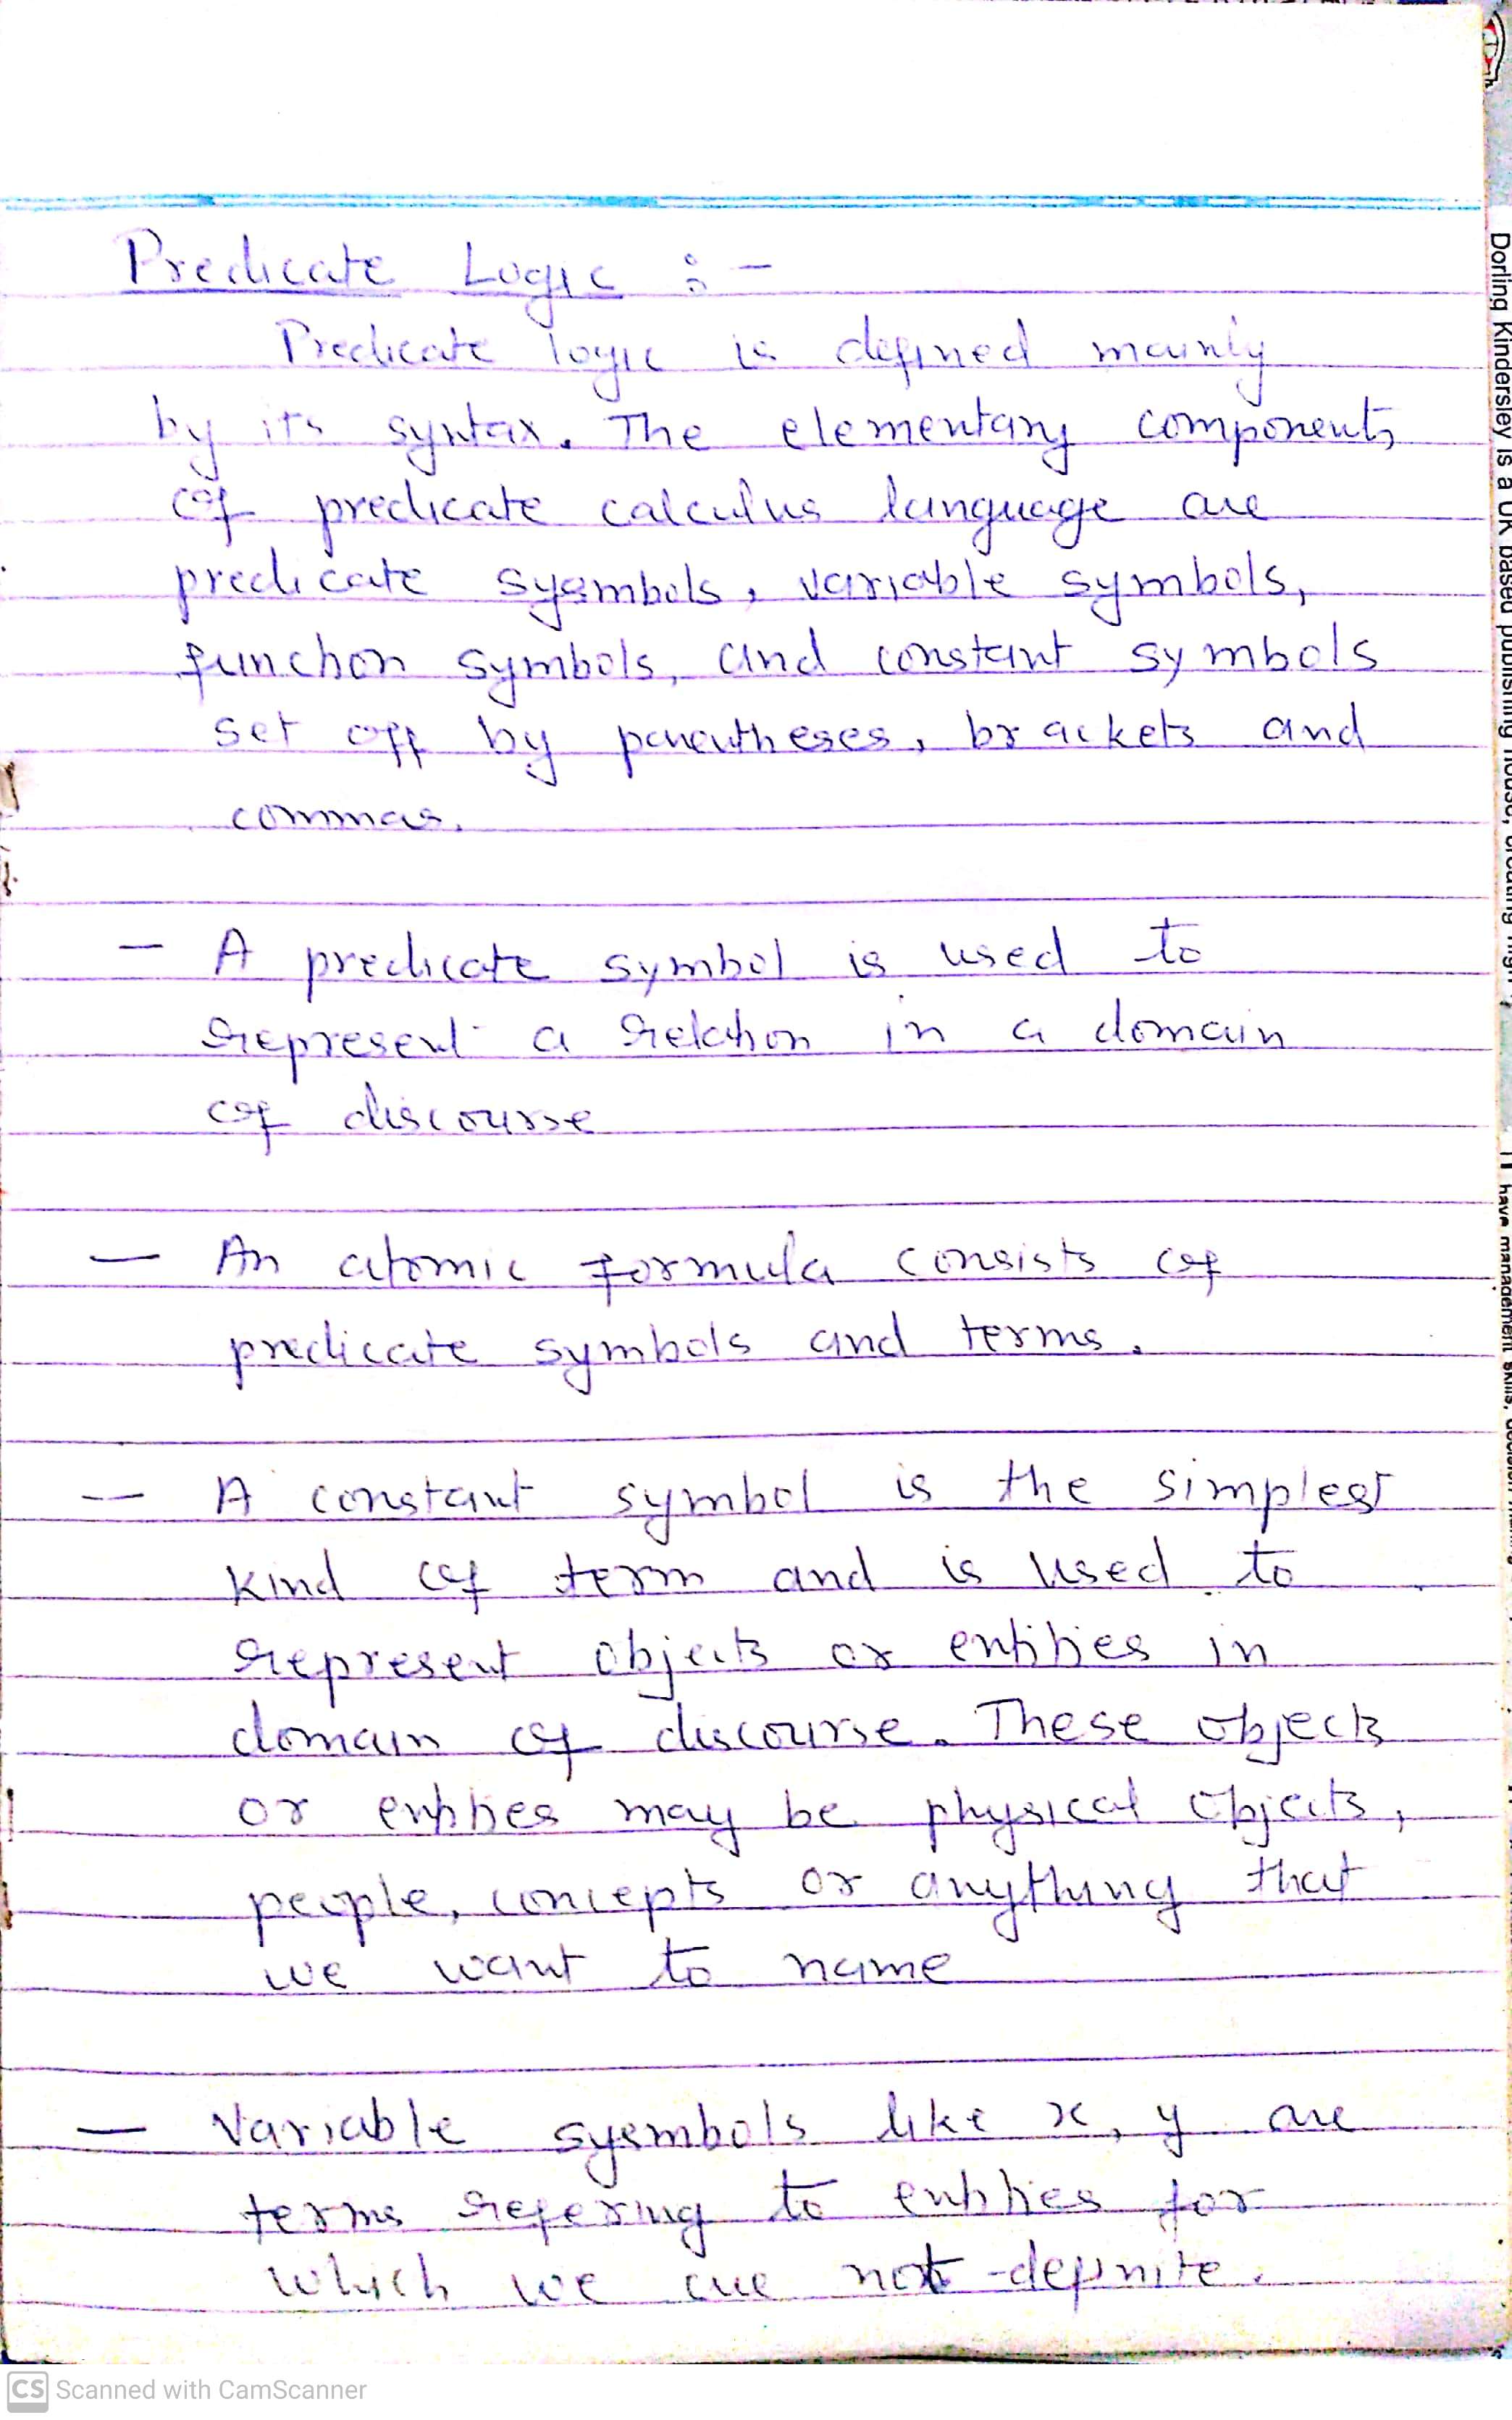 Predicate Logic :-
Predicate logic is defined mainly
by its syntax. The elementary components
of predicate calculus language are
predicate syambols, variable symbols,
function symbols, and constant symbols
set off by parentheses, brackets and
commas.
- A predicate symbol is used to
represent a relation in a domain
of discourse
- An atomic formula consists of
predicate symbols and terms.
- A constant symbol is the simplest
kind of term and is used to
represent objects or entities in
domain of discourse. These objects
or entities may be physical objects,
people, concepts or anything that
we want to name
- Variable syembols like x, y are
terms refering to entities for
which we are not definite.
Dorling Kindersley is a UK based publishing house, creating high
have management skills,
CS Scanned with CamScanner